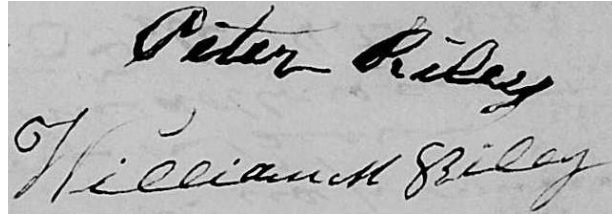 Peter Riley
William Riley